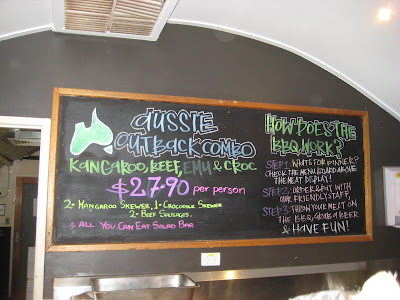 AUSSIE
OUTBACK COMBO
KANGAROO, BEEF, EMU & CROC
$27.90 per person
2- KANGAROO SKEWER, 1- CROCODILE SKEWER
2- BEEF SAUSAGES.
ALL YOU CAN EAT SALAD BAR
HOW DOES THE
BBQ WORK?
STEP 1: WHATS FOR DINNER?
CHECK THE MENU BOARD ABOVE
THE MEAT DISPLAY!
STEP 2: ORDER & PAY WITH
OUR FRIENDLY STAFF,
STEP 3: THROW YOUR MEAT ON
THE BBQ, GRAB A BEER
& HAVE FUN!